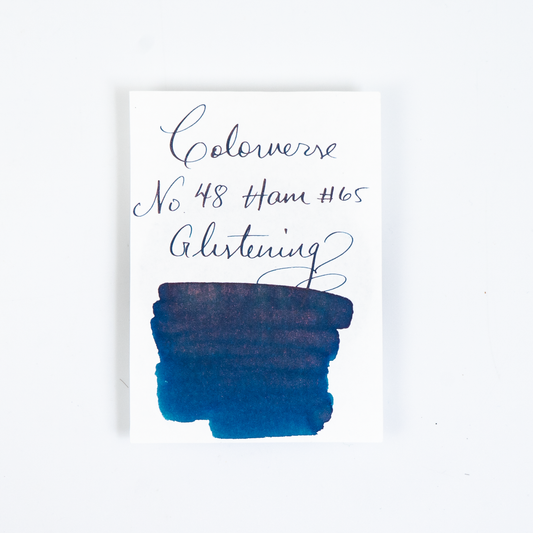 Colorverse
No. 48 Ham #65
Glistening